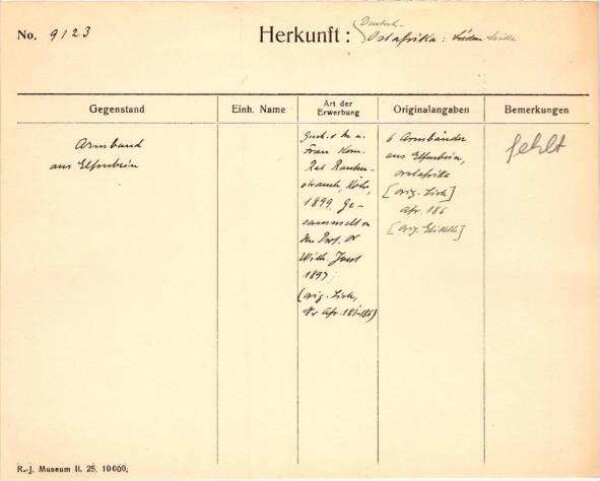 No. 9123
Herkunft:
Deutsch-
Ostafrika:
Gegenstand
Einh. Name
Art der
Erwerbung
Originalangaben
Bemerkungen
Armband
aus Elfenbein
Gesch. d.
Frau Kom.
Rat Rauten-
strauch, Köln,
1899. Ge-
sammelt v.
Prof. Dr
Wilh. Joest
1897;
(orig. Liste,
Nr Afr.
6 Armbänder
aus Elfenbein,
Ostafrika
[orig. Liste]
Afr. 186
[orig. Etikette]
fehlt
R.-J. Museum II. 25. 10000.